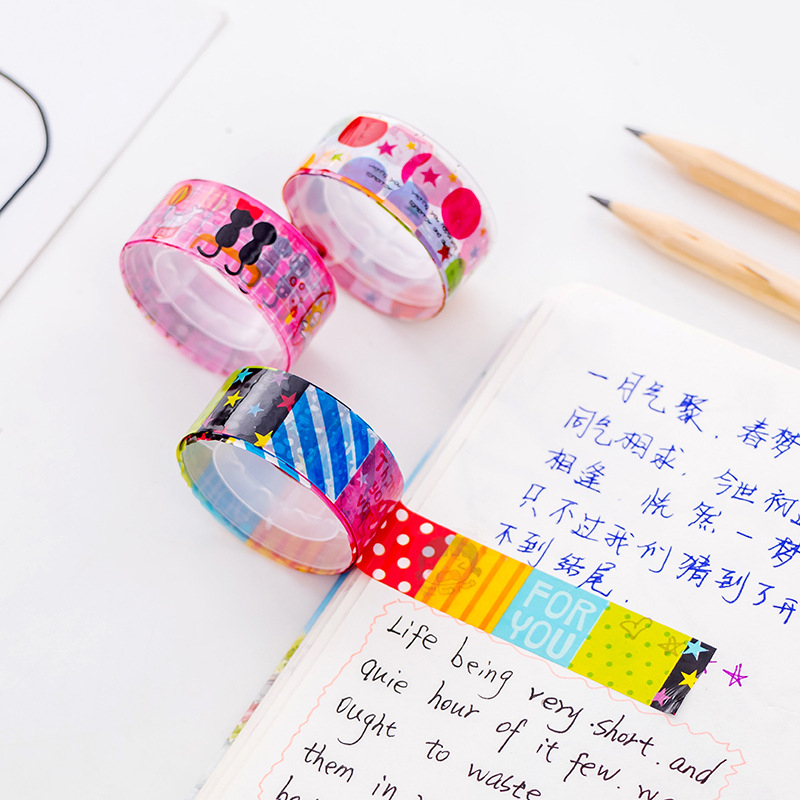 一月气聚.春梦
同气相求.今世初
相逢 恍然一梦
只不过我们猜到了开
不到结尾.
FOR
YOU
Life being very.short.and
quie hour of it few. we
ought to waste
them in